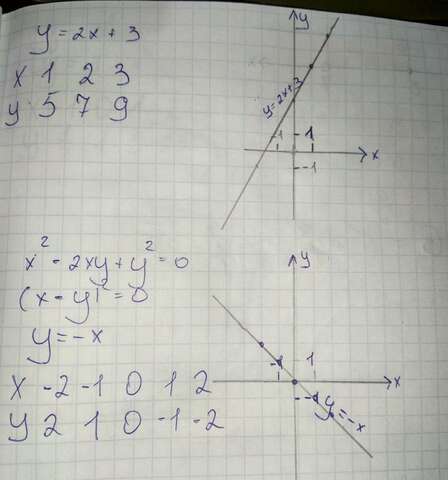 y = 2x + 3
x 1 2 3
y 5 7 9
y
y=2x+3
1 1
x
-1
x² - 2xy + y² = 0
(x - y)² = 0
y = -x
x -2 -1 0 1 2
y 2 1 0 -1 -2
y
1
x
y=-x